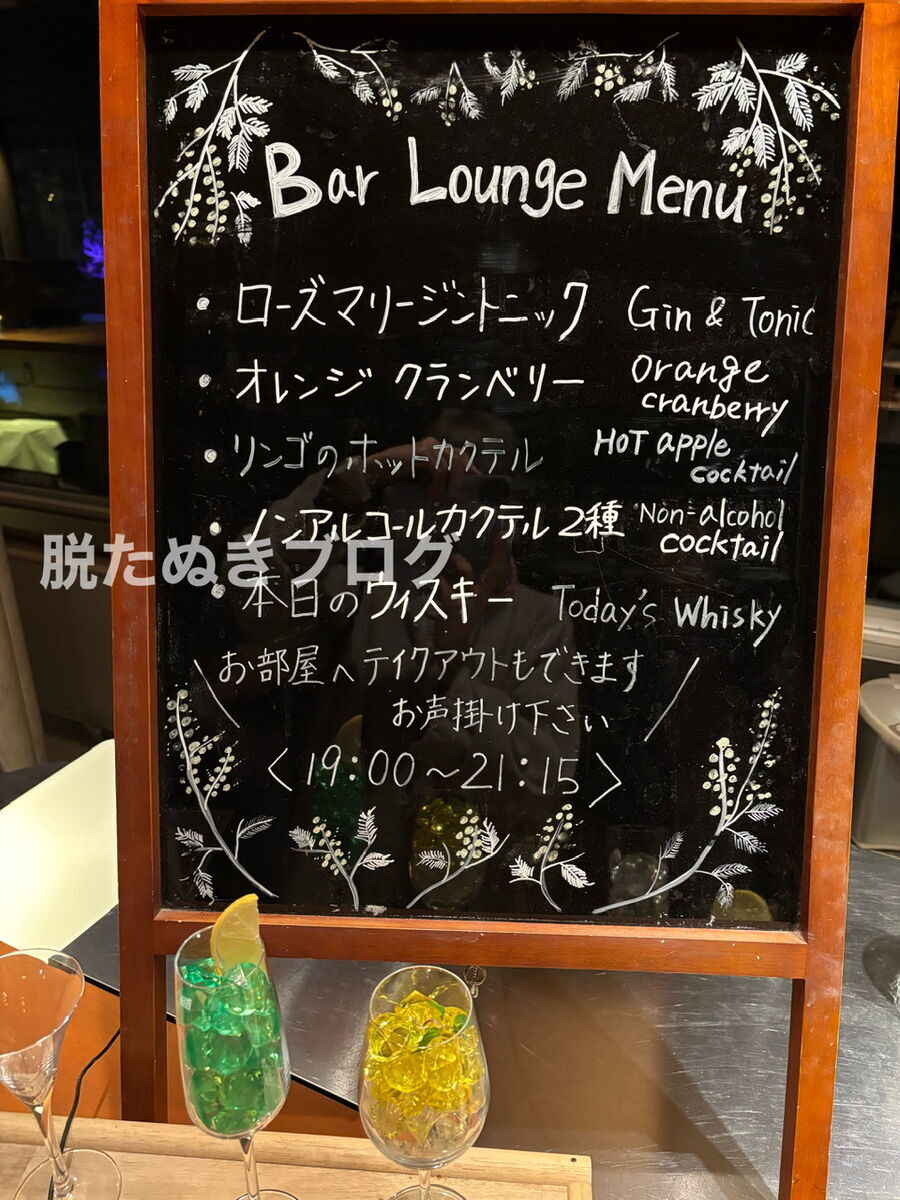 Bar Lounge Menu
・ローズマリージントニック Gin & Tonic
・オレンジ クランベリー Orange cranberry
・リンゴのホットカクテル HOT apple cocktail
・ノンアルコールカクテル 2種 Non-alcohol cocktail
脱たぬきブログ
・本日のウィスキー Today's Whisky
\ お部屋へテイクアウトもできます /
お声掛け下さい
〈19:00～21:15〉